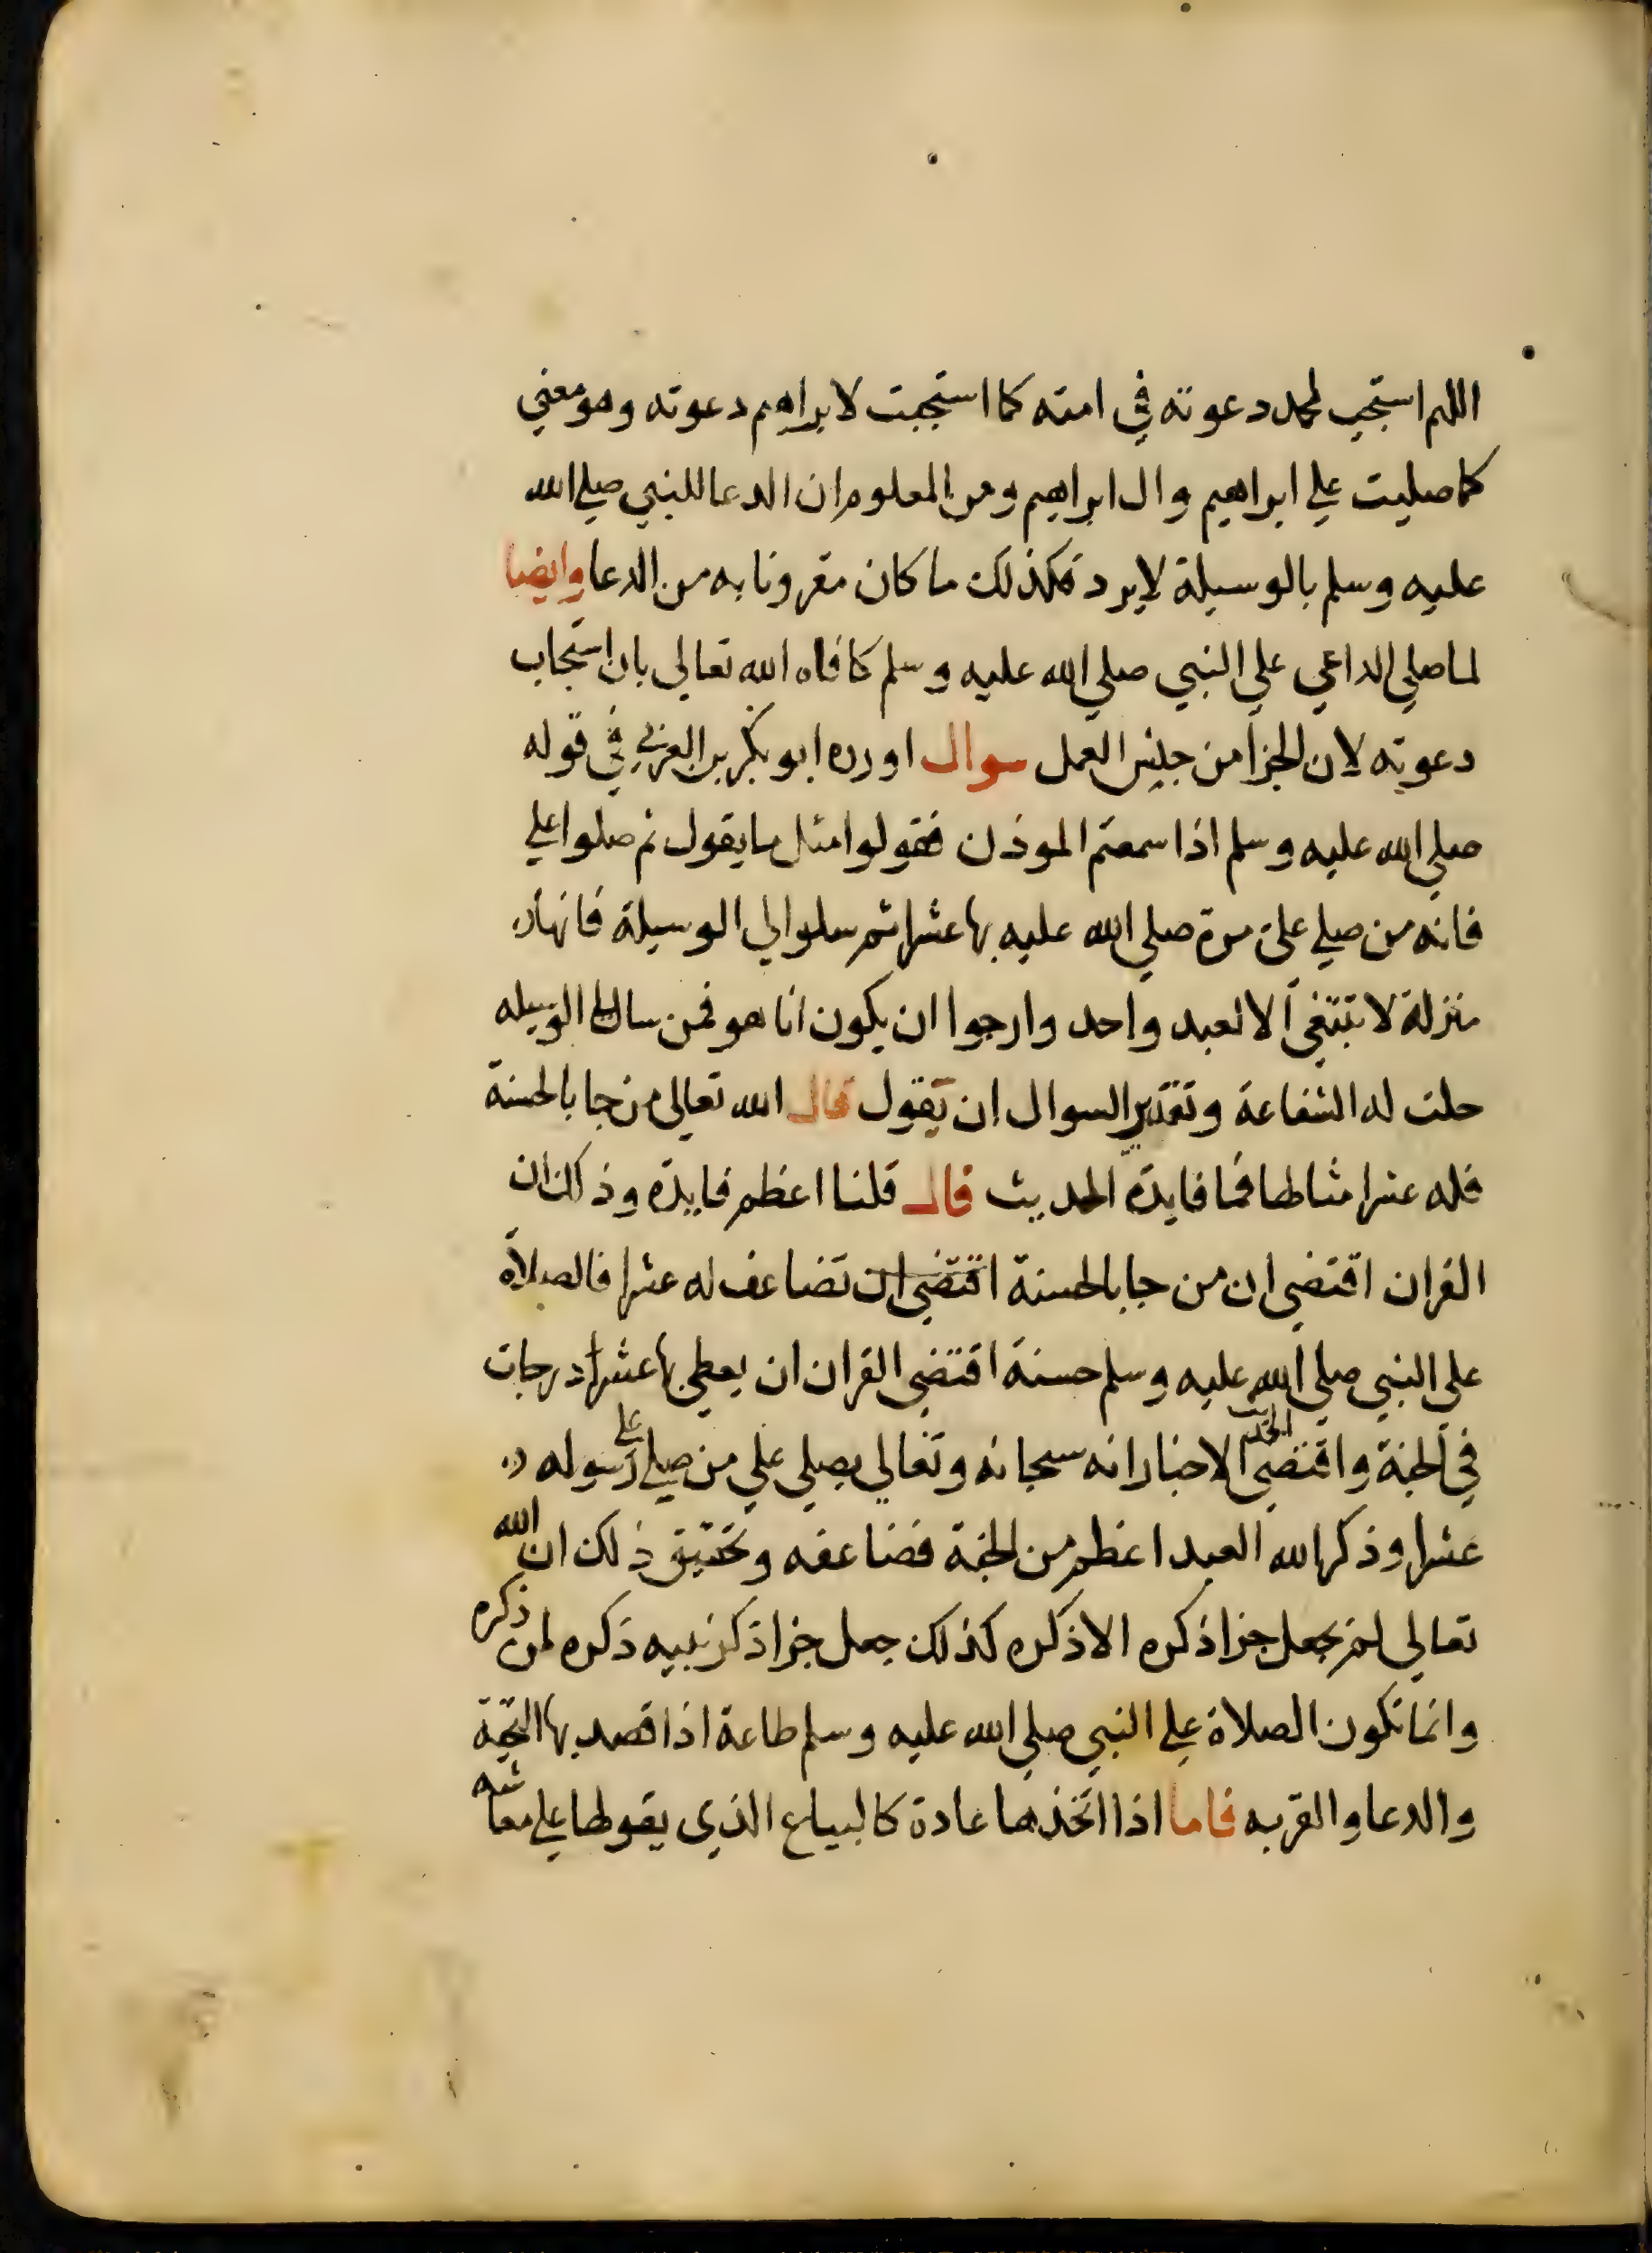 اللهم استجب لمحمد دعوته في امته كما استجبت لابراهيم دعوته وهو معني
كما صليت علي ابراهيم وال ابراهيم ومن المعلوم ان الدعا للنبي صلي الله
عليه وسلم بالوسيلة لايرد فكذلك ما كان مقرونا به من الدعا وايضا
لما صلي الداعي علي النبي صلي الله عليه وسلم كافاه الله تعالي بان استجاب
دعوته لان الجزا من جنس العمل سوال اورده ابو بكر بن العربي في قوله
صلي الله عليه وسلم اذا سمعتم الموذن فقولوا مثل ما يقول ثم صلوا علي
فانه من صلي علي مرة صلي الله عليه بها عشرا ثم سلوا لي الوسيلة فانها
منزلة لا تنبغي الا لعبد واحد وارجوا ان يكون انا هو فمن سال لي الوسيله
حلت له الشفاعة وتقدير السوال ان يقول قال الله تعالي من جا بالحسنة
فله عشر امثالها فما فايدة الحديث قال قلنا اعظم فايدة وذلك ان
القران اقتضي ان من جا بالحسنة اقتضي ان تضاعف له عشرا فالصلاة
علي النبي صلي الله عليه وسلم حسنة اقتضي القران ان يعطي بها عشر درجات
في الجنة واقتضي الحديث الاخبار انه سبحانه وتعالي يصلي علي من صلي علي رسوله
عشرا وذكر الله العبد اعظم من الجنة مضاعفه وتحقيق ذلك ان الله
تعالي لم يجعل جزا ذكره الا ذكره كذلك جعل جزا ذكر نبيه ذكره لمن ذكره
وانما تكون الصلاة علي النبي صلي الله عليه وسلم طاعة اذا قصد بها التحية
والدعا والقربه فاما اذا اتخذها عادة كالبياع الذي يقولها علي معاشه